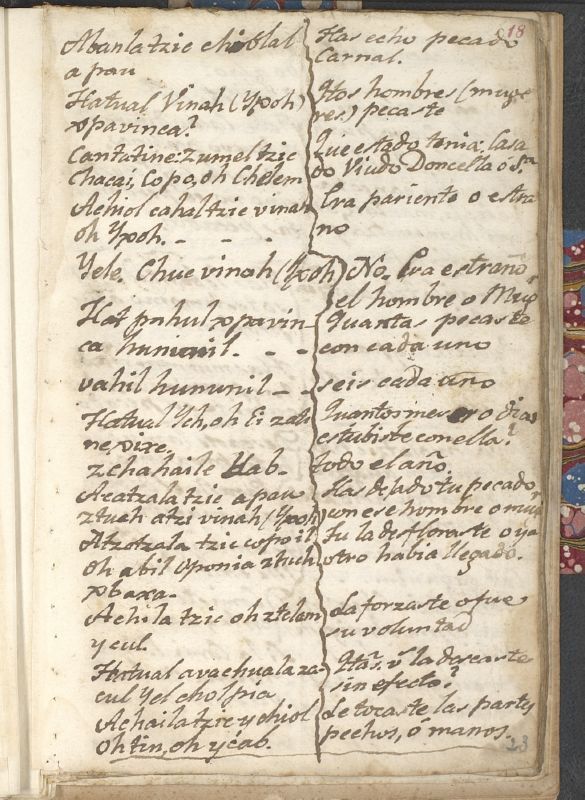 18
Abanla tzic chiblal
a pau
Hatual Vinah (Ypoh)
xpavinca?
Cantatine: zumeltzic
Chacai, Copo, oh Chelem
Achiol cahaltzic vinah
oh Ypoh. - - -
Yele. Chue vinah (Ypoh)
Hat pahul xpavin
ca huniunil. - -
vahil hununil - -
Hatual Ych, oh Ei zati
nexixe.
zchahaile Hab.
Acatzala tzic a pau
ztuch atzi vinah (Ypoh)
Atzotzala tzic copoil
oh abil Oponia ztuch
xbaxa.
Achila tzic oh ztelem
y cul.
Hatual avachuala za
cul yel cholpia
Achaila tzic y chiol
oh tin, oh ycab.
Has echo pecado
Carnal.
Htos hombres (muge
res) pecaste
Que estado tenia: Casa
do Viudo Doncella ó Sra.
Era pariente o estra
no
No. Era estraño
el hombre o Mug
Quantas pecaste
con cada uno
seis cada uno
Quantos meses o dias
estubiste con ella?
todo el año
Has dejado tu pecado
con ese hombre o mug
Tu la desfloraste o ya
otro habia llegado.
La forzaste o fue
su voluntad
Hts. vs. la deseaste
sin efecto?
Le tocaste las partes
pechos, ó manos.
23